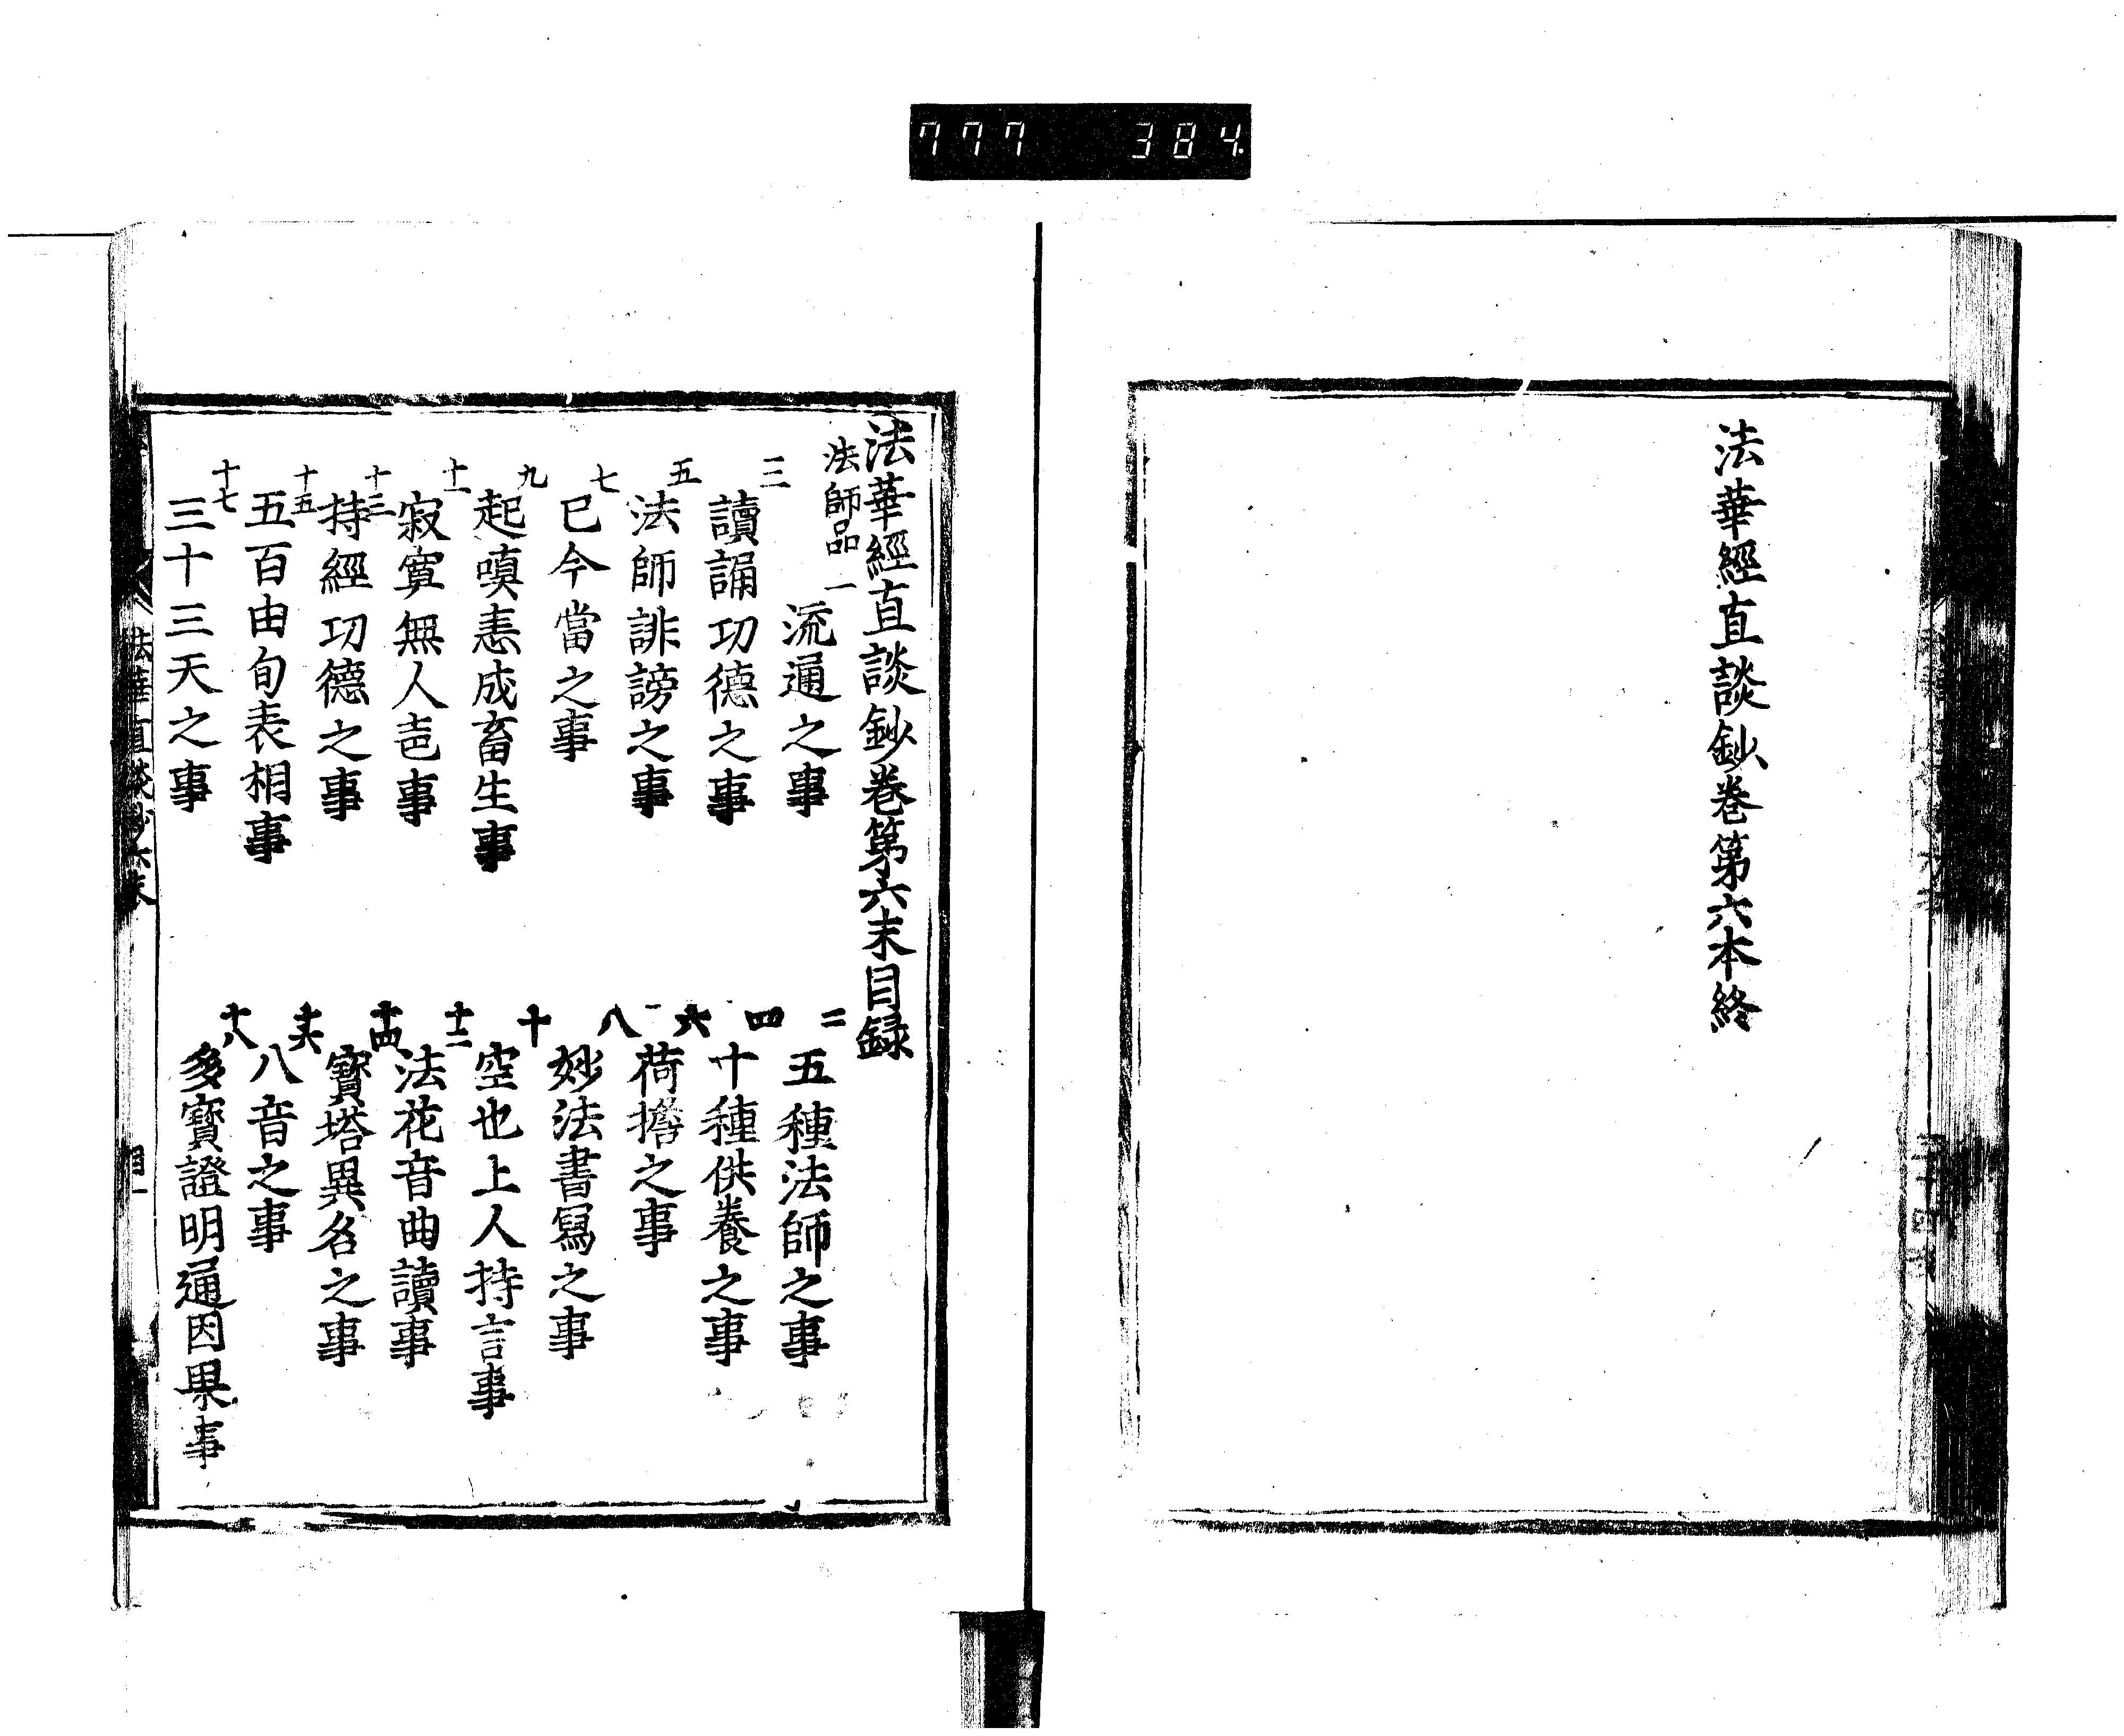 777 384
法華經直談鈔卷第六本終
法華經直談鈔卷第六末目録
法師品
一 流通之事
二 五種法師之事
三 讀誦功德之事
四 十種供養之事
五 法師誹謗之事
六 荷擔之事
七 已今當之事
八 妙法書寫之事
九 起嗔恚成畜生事
十 空也上人持言事
十一 寂寞無人声事
十二 法花音曲讀事
十三 持經功德之事
十四 寶塔異名之事
十五 五百由旬表相事
十六 八音之事
十七 三十三天之事
十八 多寶證明通因果事
法華直談鈔六末
目一